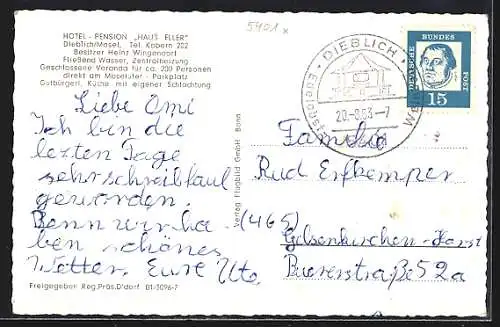 5401x
HOTEL - PENSION „HAUS ELLER"
Dieblich/Mosel, Tel. Kobern 202
Besitzer Heinz Wingendorf
Fließend Wasser, Zentralheizung
Geschlossene Veranda für ca. 230 Personen
direkt am Moselufer - Parkplatz
Gutbürgerl. Küche mit eigener Schlachtung
Liebe Omi
Ich bin die
lezten Tage
sehr schreibfaul
geworden.
Denn wir ha-
ben schönes
Wetter. Eure Ute
Freigegeben Reg.Präs.D'dorf B1/3096-7
Verlag Flugbild GmbH Bonn
DIEBLICH
20.-8.63.-7
DEUTSCHE BUNDESPOST
15
Familie
Rud Erfkemper
(465)
Gelsenkirchen-Horst
Buererstraße 52a